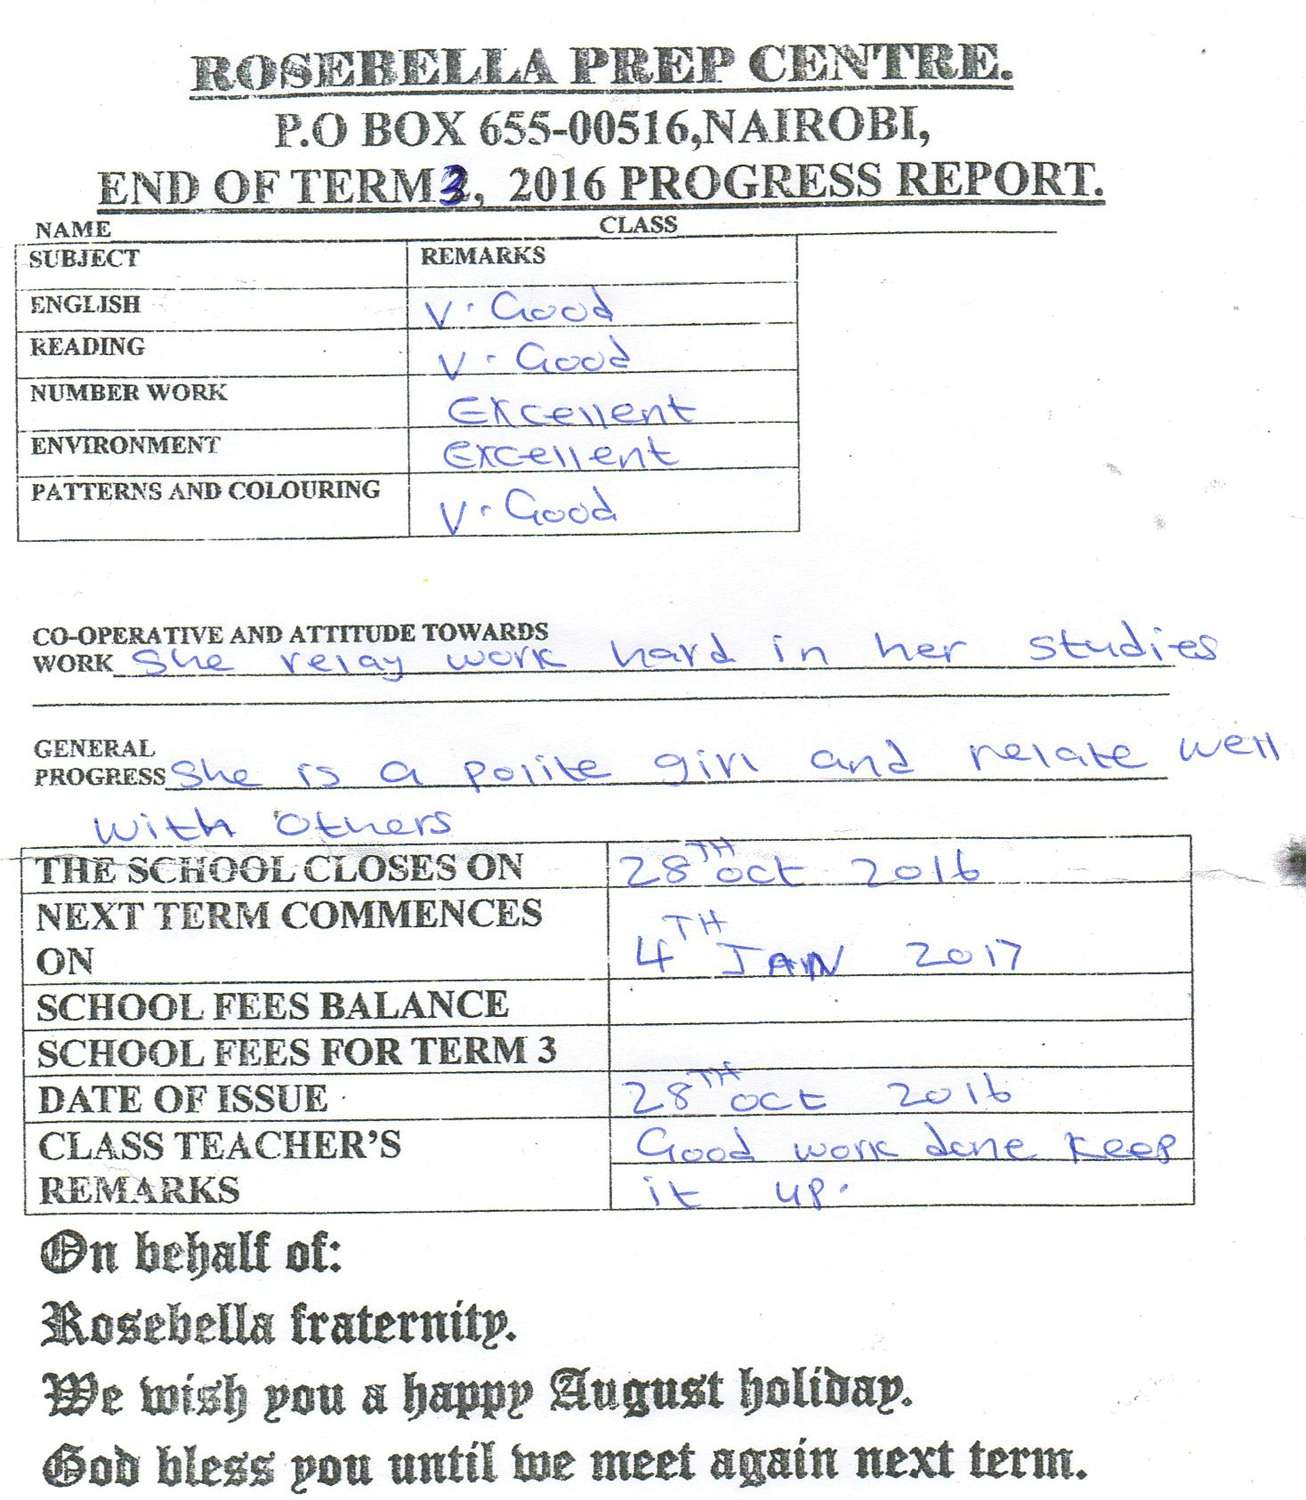 ROSEBELLA PREP CENTRE.
P.O BOX 655-00516,NAIROBI,
END OF TERM 3, 2016 PROGRESS REPORT.
NAME CLASS
SUBJECT REMARKS
ENGLISH V. Good
READING V. Good
NUMBER WORK Excellent
ENVIRONMENT Excellent
PATTERNS AND COLOURING V. Good
CO-OPERATIVE AND ATTITUDE TOWARDS
WORK She relay work hard in her studies
GENERAL
PROGRESS She is a polite girl and relate well
with others
THE SCHOOL CLOSES ON 28TH Oct 2016
NEXT TERM COMMENCES
ON 4TH JAN 2017
SCHOOL FEES BALANCE
SCHOOL FEES FOR TERM 3
DATE OF ISSUE 28TH Oct 2016
CLASS TEACHER'S Good work done keep
REMARKS it up.
On behalf of:
Rosebella fraternity.
We wish you a happy August holiday.
God bless you until we meet again next term.